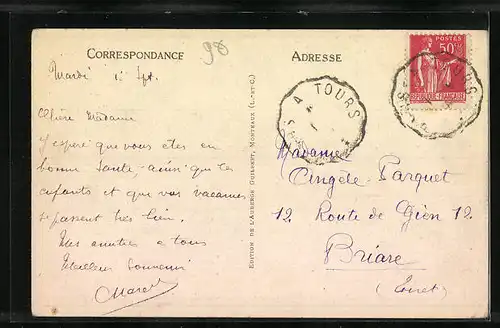 CORRESPONDANCE
98
ADRESSE
POSTES
50c
REPUBLIQUE FRANCAISE
A TOURS
TOURS
Mardi 1r Spt.
Chère Madame
J'espère que vous êtes en
bonne santé, ainsi que les
enfants et que vos vacances
se passent très bien.
Mes amitiés a tous
Meilleur souvenir
Marcel
EDITION DE L'AUBERGE
Madame
Angèle Parquet
12 Route de Gien 12
Briare
(Loiret)